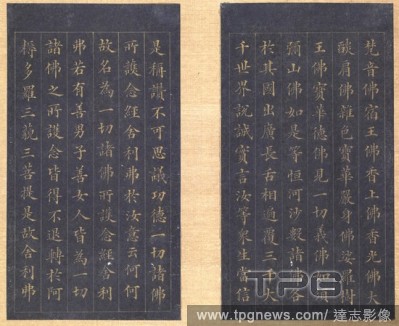 梵音佛宿王佛香上佛香光佛大
焰肩佛雜色寶華嚴身佛娑羅樹
王佛寶華德佛見一切義佛如須
彌山佛如是等恒河沙數諸佛各
於其國出廣長舌相遍覆三千大
千世界說誠實言汝等衆生當信
是稱讚不可思議功德一切諸佛
所護念經舍利弗於汝意云何何
故名為一切諸佛所護念經舍利
弗若有善男子善女人皆為一切
諸佛之所護念皆得不退轉於阿
耨多羅三藐三菩提是故舍利弗
TPG
www.tpgnews.com/達志影像